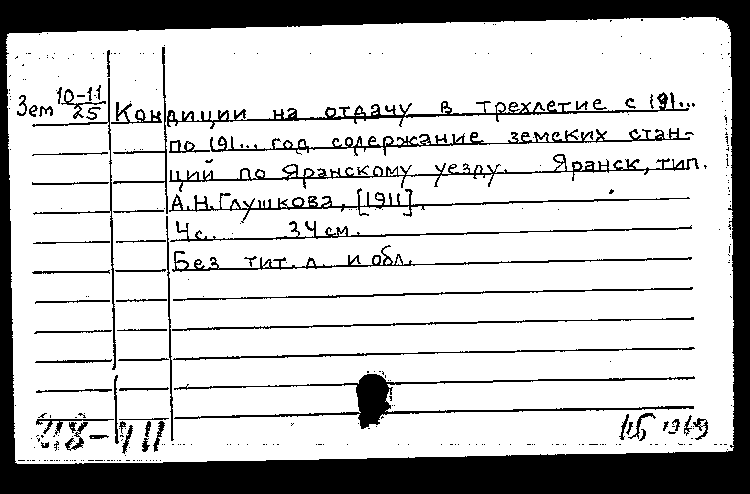 Зем 10-11/25
Кондиции на отдачу в трехлетие с 191...
по 191... год содержание земских стан-
ций по Яранскому уезду. Яранск, тип.
А.Н.Глушкова, [1911].
4с. 34см.
Без тит. л. и обл.